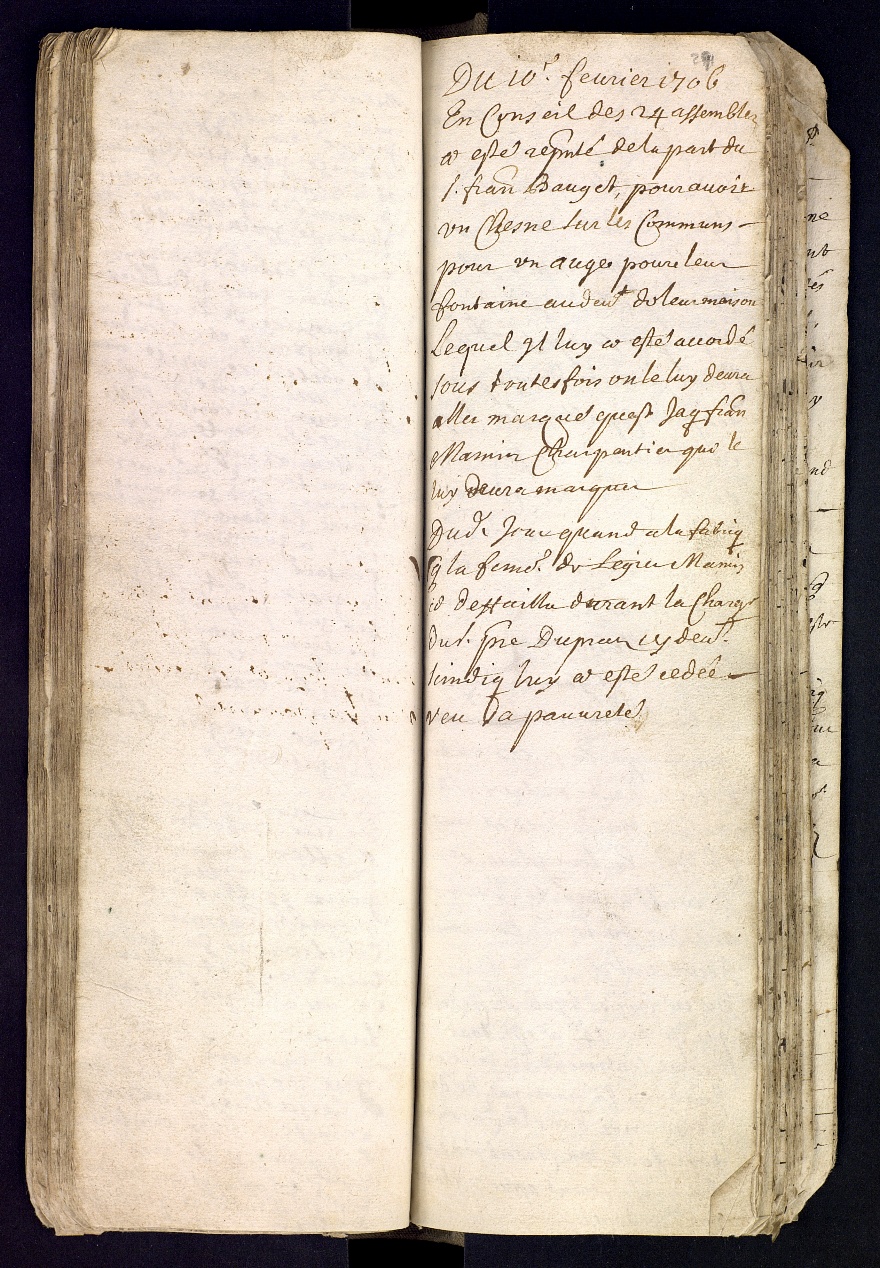 Du 10.r feurier 1706
En Conseil des 24 assemblez
a esté rep̃nté de la part du
s.r fran Bauget, pour auoir
vn Chesne sur les Communs -
pour vn auge pour leur
fontaine au deu.t de leur maison
Lequel Jl luy a esté accordé
sous toutesfois on le luy deura
aller marqué quest Jaq fran
Mamin Charpantier qui le
luy deura marquer
Dud. Jour quand a la
q la feme. de Mamin
a destailla durant la Charge
du s.r p̃re cy deu.t
sindiq luy a esté cedée -
veu sa pauureté